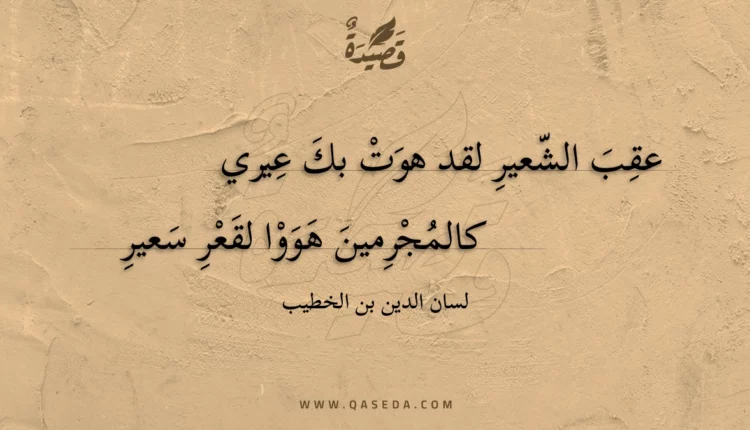 قَصِيْدَةٌ
عقِبَ الشّعيرِ لقد هوَتْ بكَ عِيري
كالمُجْرِمينَ هَوَوْا لقَعْرِ سَعيرِ
لسان الدين بن الخطيب
WWW.QASEDA.COM